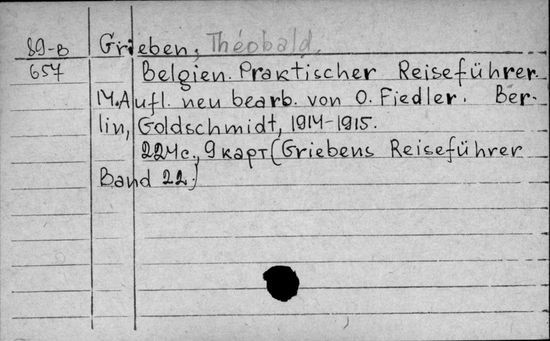 89-В Grieben, Théobald.
657 Belgien. Praktischer Reiseführer
14. Aufl. neu bearb. von O. Fiedler. Ber-
lin, Goldschmidt, 1914-1915.
224 с., 9 карт (Griebens Reiseführer
Band 22.)